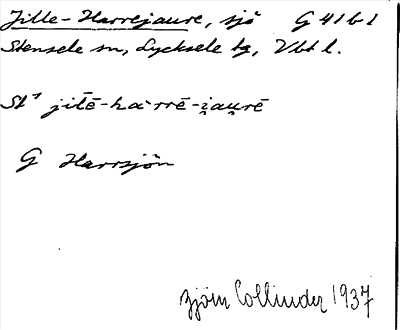 Jille-Harrejaure, sjö G 41 b 1
Stensele sn, Lycksele lg, Vbt l.
St¹ jilē-hàrrē-i̯au̯rē
G Harrsjön
Björn Collinder 1937